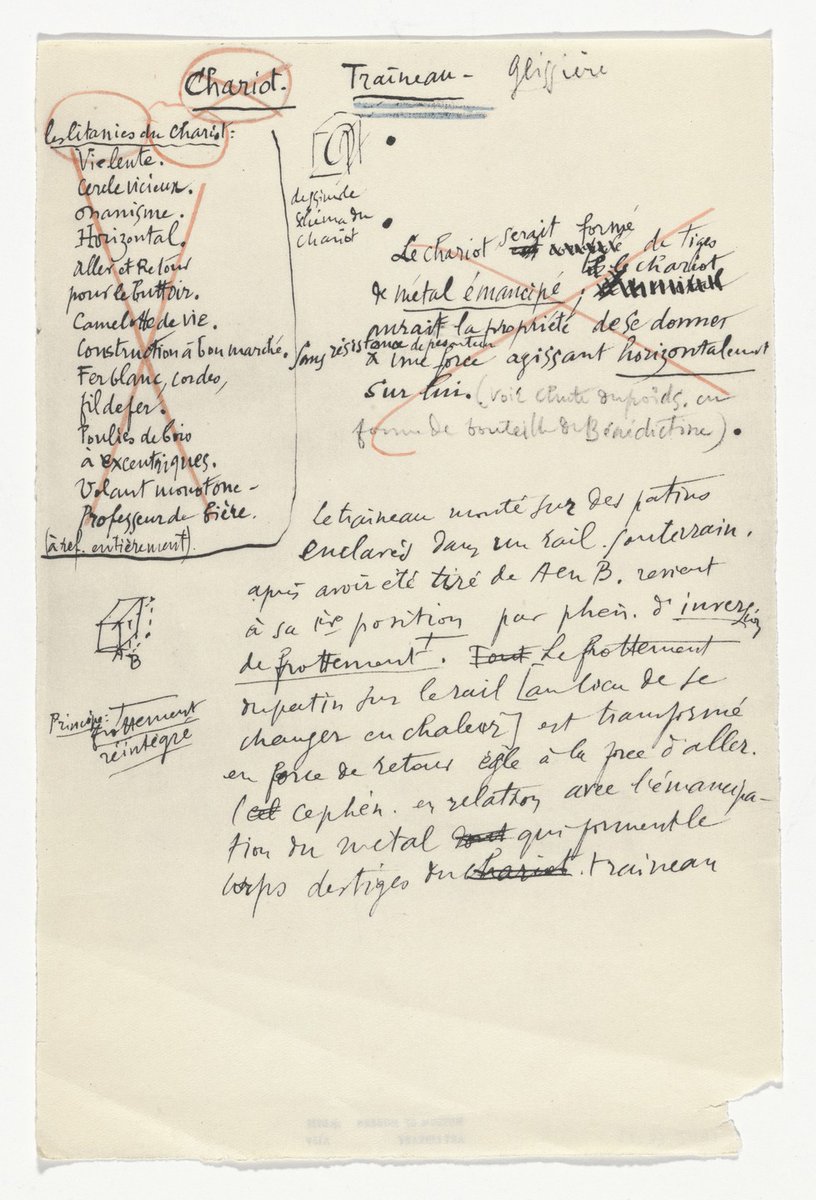 Chariot. Traîneau - glissière
les litanies du Chariot:
Vie lente.
Cercle vicieux.
onanisme.
Horizontal.
aller et Retour
pour le buttoir.
Camelotte de vie.
Construction à bon marché.
Fer blanc, cordes,
fil de fer.
Poulies de bois
à excentriques.
Volant monotone -
Professeur de bière.
(à ref. entièrement).
dessin de
schéma du
chariot
Le chariot serait formé de tiges
de métal émancipé; le chariot
aurait la propriété de se donner
sans résistance de pesanteur
à une force agissant horizontalement
sur lui. (voir chute du poids. en
forme de bouteille de Bénédictine).
le traîneau monté sur des patins
enclavés dans un rail souterrain.
après avoir été tiré de A en B. revient
à sa 1ère position par phén. d'inversion
de frottement †. Tout Le frottement
du patin sur le rail [au lieu de se
changer en chaleur] est transformé
en force de retour égle à la force d'aller.
(cet ce phén. en relation avec l'émancipa-
tion du metal dont qui forment le
corps des tiges du chariot. traineau
A
B
Principe: †
frottement
réintégré